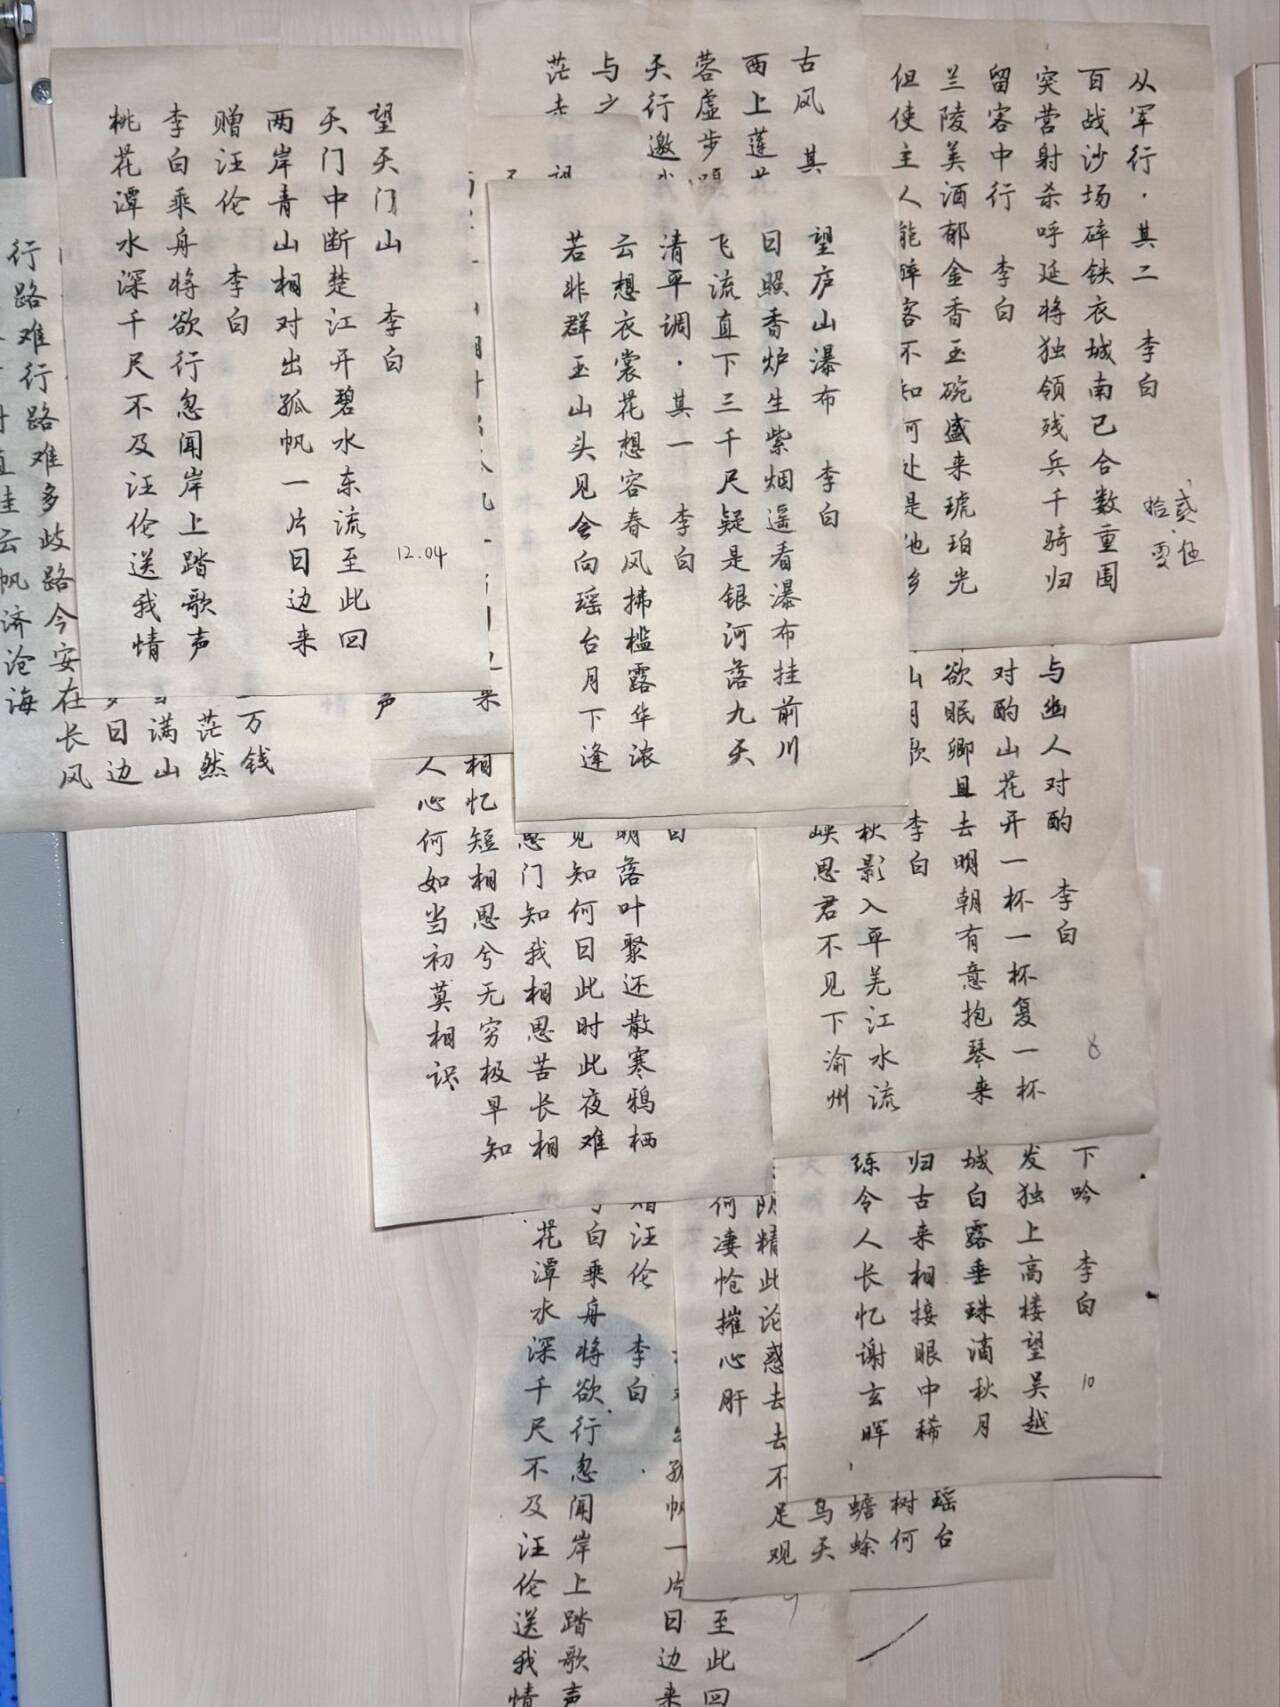 望天门山 李白
天门中断楚江开碧水东流至此回
两岸青山相对出孤帆一片日边来
赠汪伦 李白
李白乘舟将欲行忽闻岸上踏歌声
桃花潭水深千尺不及汪伦送我情
12.04
古风 其
西上莲花
蓉虚步
天行邀
与之
茫
望庐山瀑布 李白
日照香炉生紫烟遥看瀑布挂前川
飞流直下三千尺疑是银河落九天
清平调·其一 李白
云想衣裳花想容春风拂槛露华浓
若非群玉山头见会向瑶台月下逢
从军行·其二 李白
百战沙场碎铁衣城南已合数重围
突营射杀呼延将独领残兵千骑归
留客中行 李白
兰陵美酒郁金香玉碗盛来琥珀光
但使主人能醉客不知何处是他乡
万钱
茫然
满山
日边
行路难行路难多歧路今安在长风
云帆济沧海
声
与幽人对酌 李白
对酌山花开一杯一杯复一杯
欲眠卿且去明朝有意抱琴来
山月歌 李白
秋影入平羌江水流
峡思君不见下渝州
8
白
明落叶聚还散寒鸦栖
见知何日此时此夜难
思门知我相思苦长相
相忆短相思兮无穷极早知
人心何如当初莫相识
下吟 李白
发独上高楼望吴越
城白露垂珠滴秋月
归古来相接眼中稀
练令人长忆谢玄晖
10
瑶台
树何
蟾蜍
乌天
阴精此论惑去去不足观
何凄怆摧心肝
至此回
孤帆一片日边来
汪伦 李白
白乘舟将欲行忽闻岸上踏歌声
花潭水深千尺不及汪伦送我情